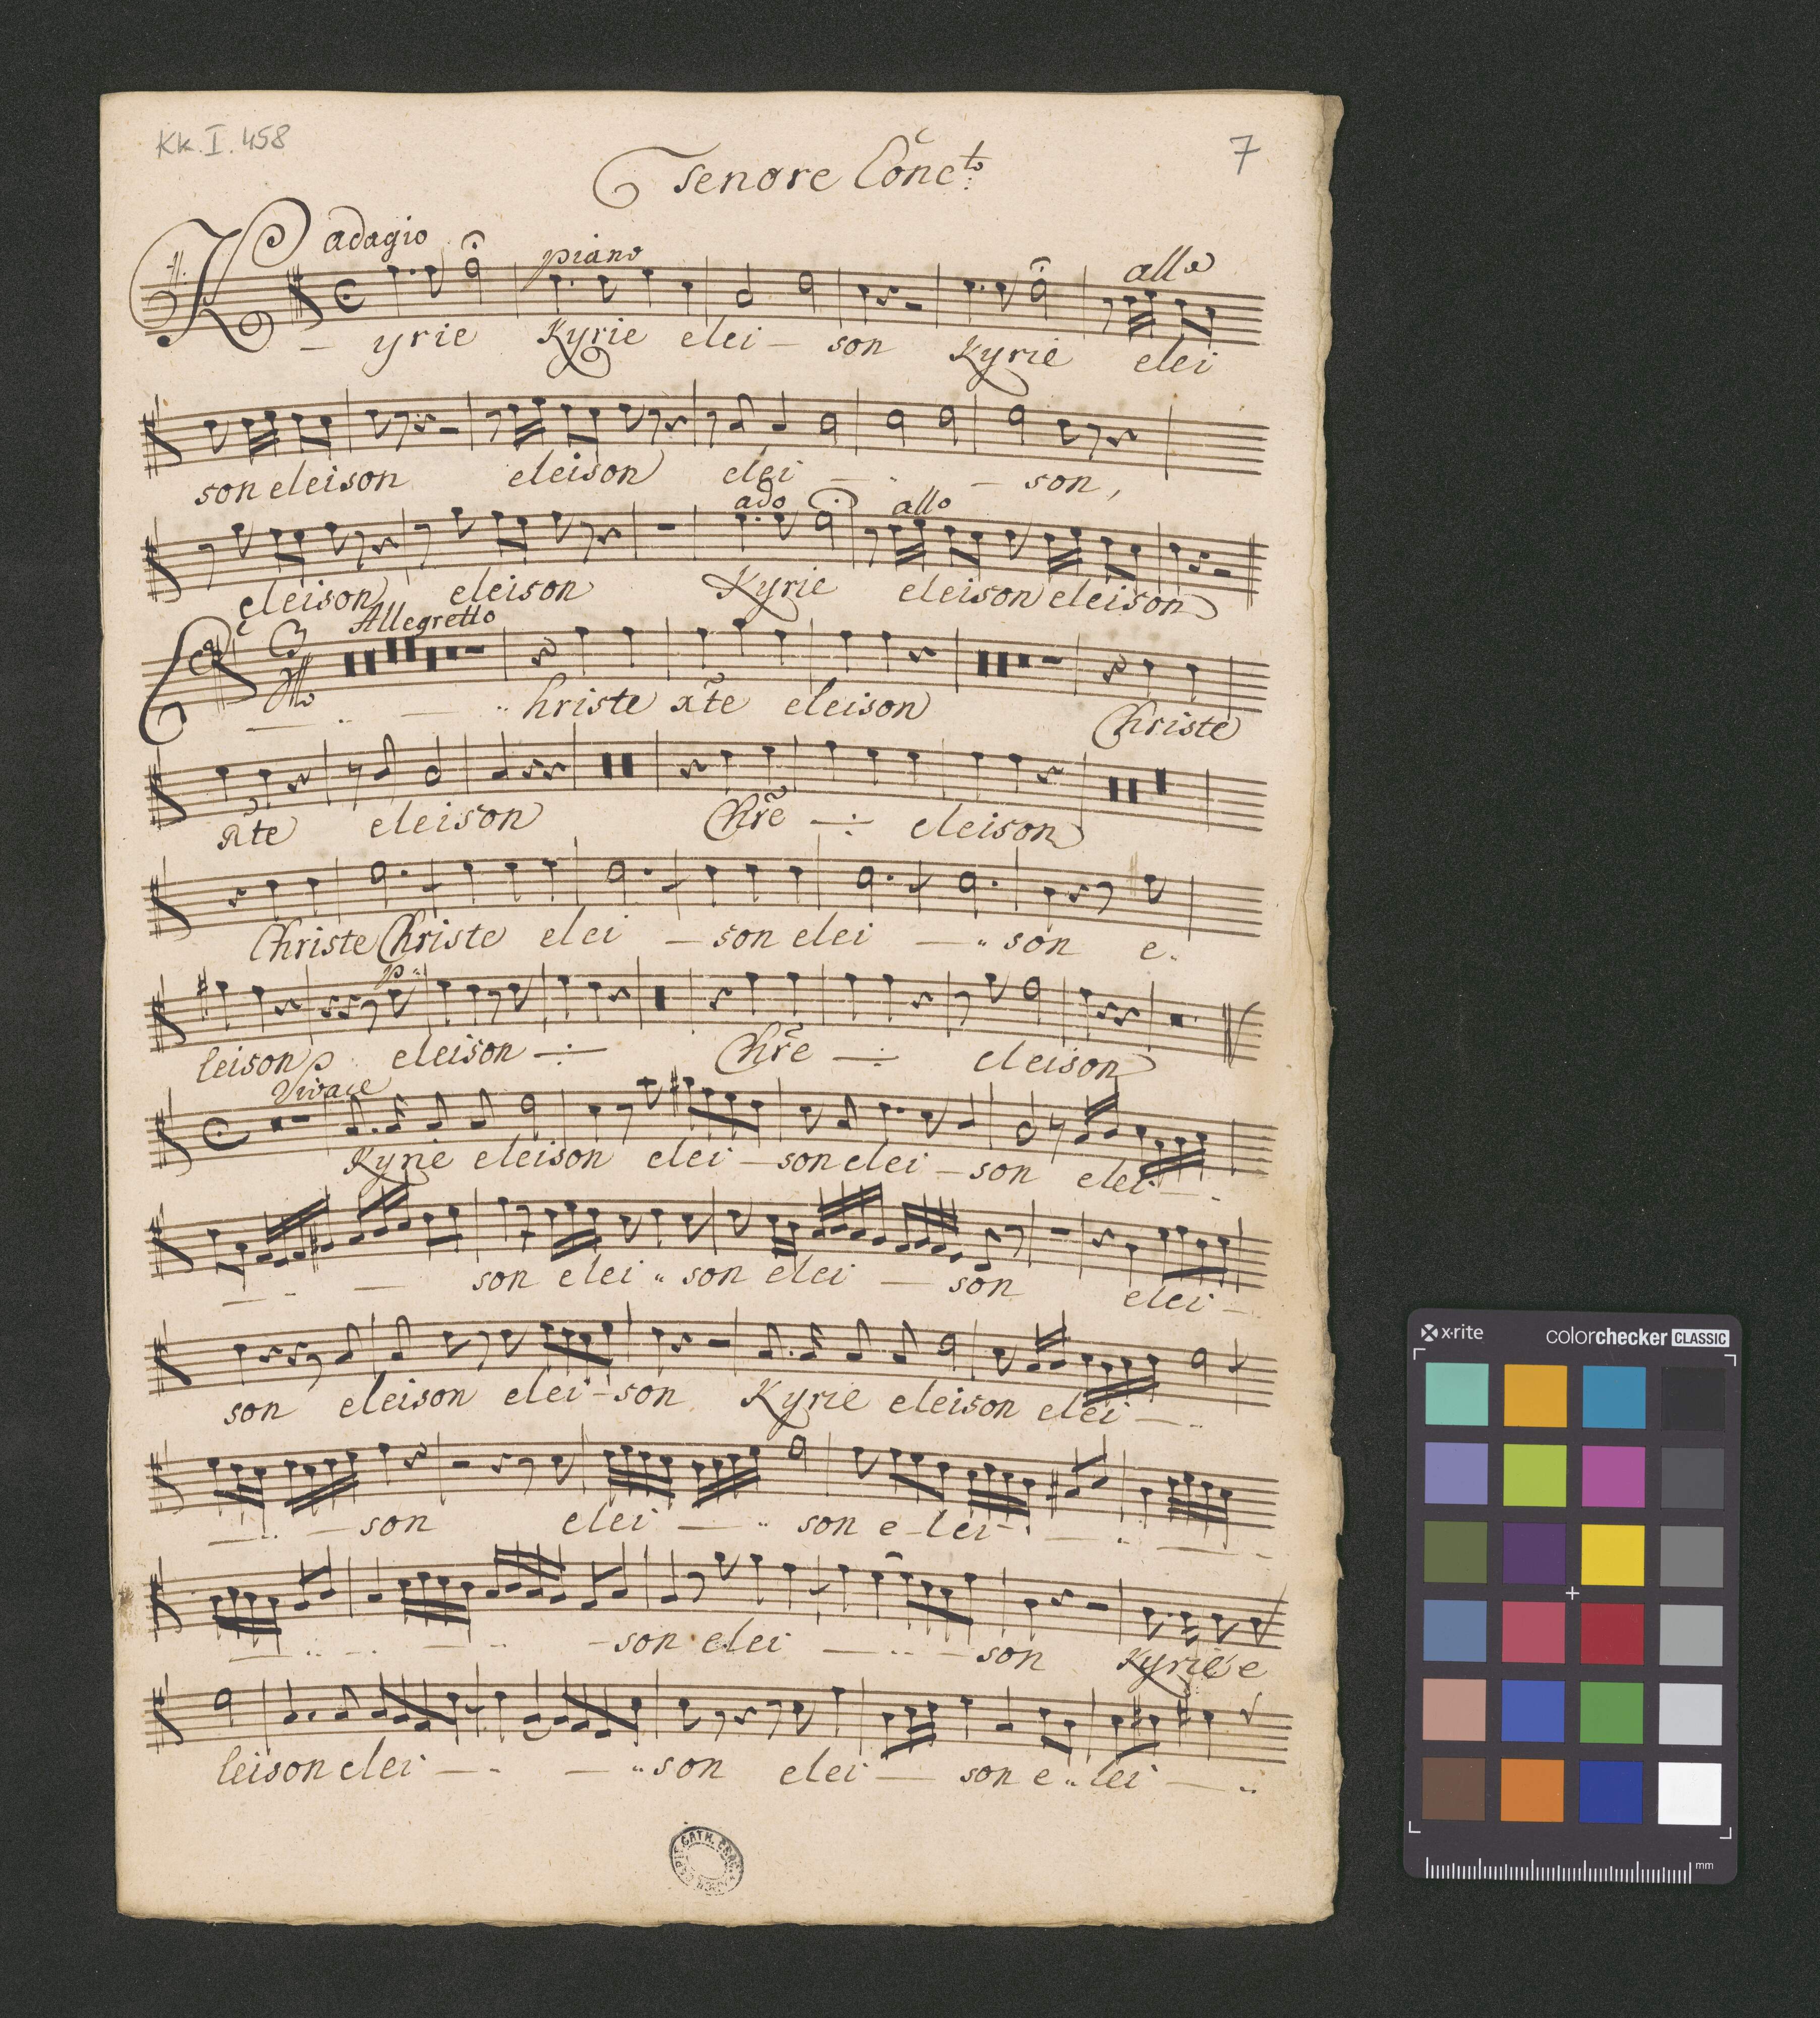 Kk. I. 458
7
Tenore Conc.to
adagio piano allo
Kyrie Kyrie elei - son Kyrie elei
son eleison eleison elei - son,
ado allo
eleison eleison Kyrie eleison eleison
Allegretto
Christe x̃te eleison Christe
x̃te eleison Chr̃e -:- eleison
Christe Christe elei - son elei - son e-
p:
leison eleison -:- Chr̃e -:- eleison
Vivace
Kyrie eleison elei - son elei - son elei -
son elei - son elei - son elei -
son eleison elei - son Kyrie eleison elei -
- son elei - son e - lei -
- son elei - son Kyrie e
leison elei - son elei - son e - lei -
x·rite colorchecker CLASSIC
mm